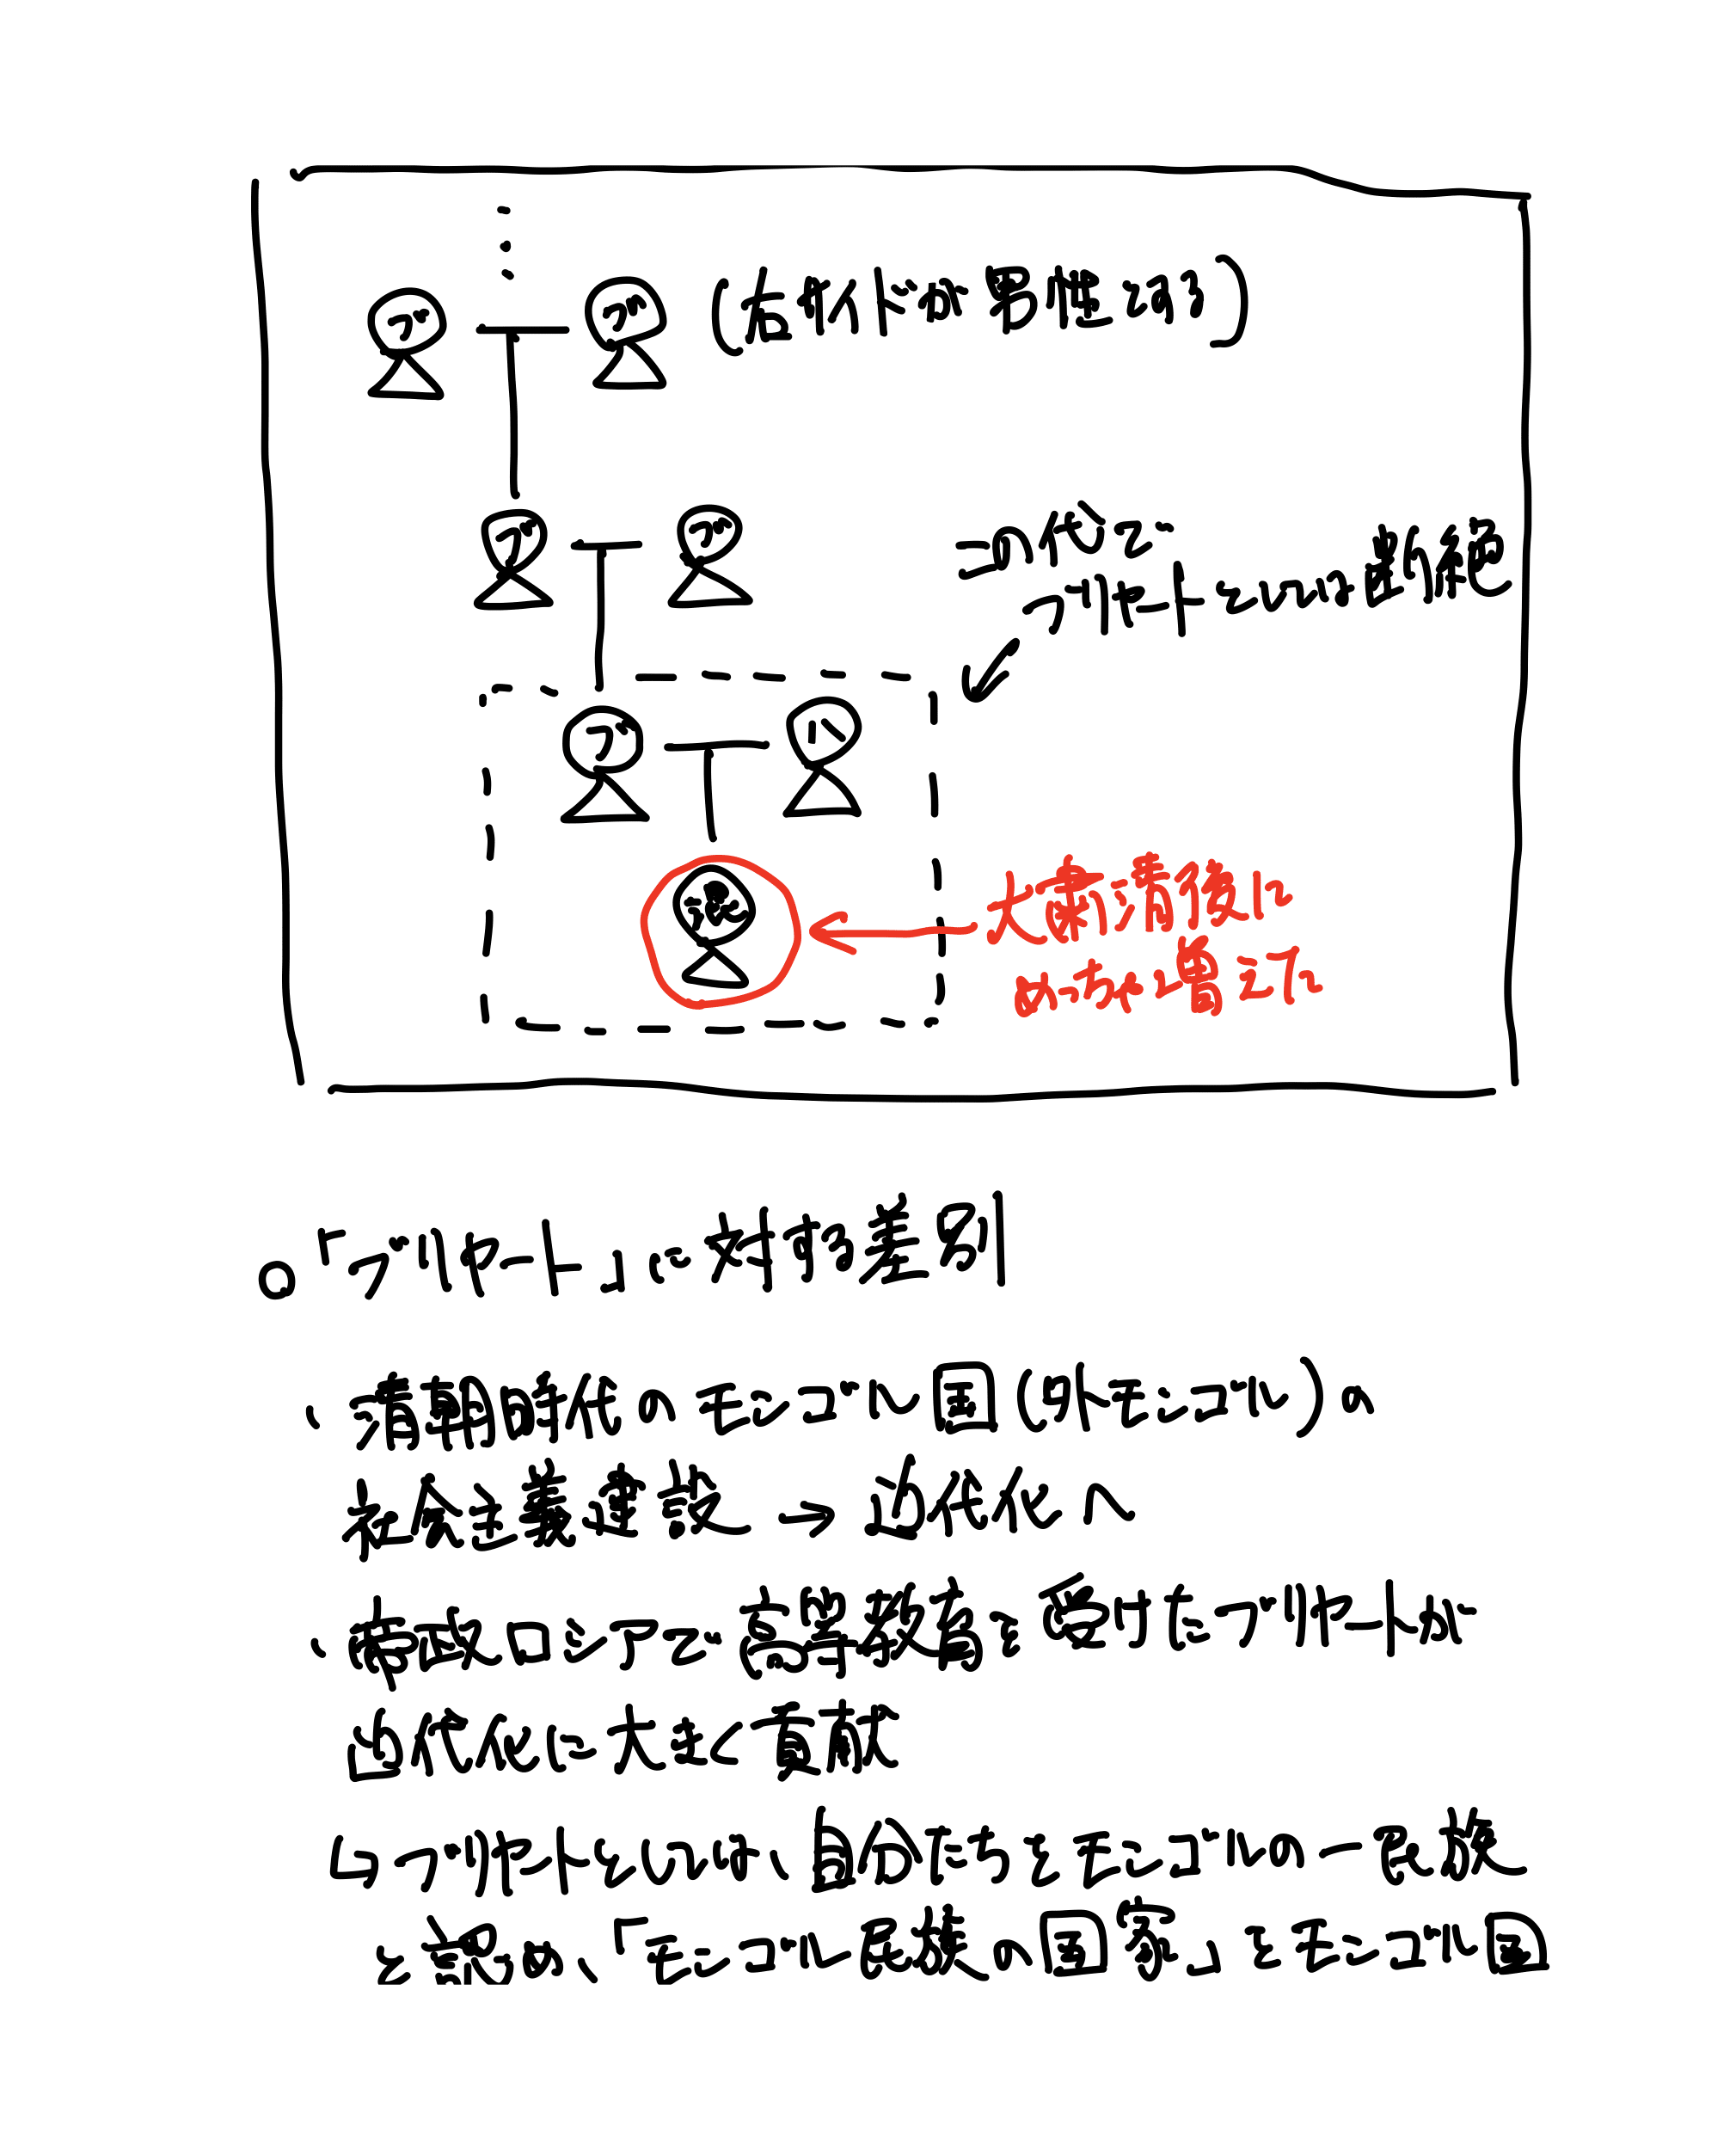 ブ ブ (左側が男性
ブ ブ この代で
ブリヤートとしては断絶
ブ ハ
大粛清後に
。「ブリヤート」に対する差別
・清朝時代のモンゴル国(外モンゴル)の
社会主義建設 → 近代化へ
・帝政ロシアで高等教育を受けたブリヤートが
近代化に大きく貢献
↳ブリヤートとしては、自分たちをモンゴルの一民族
と認め、「モンゴル民族の国家」とモンゴル国